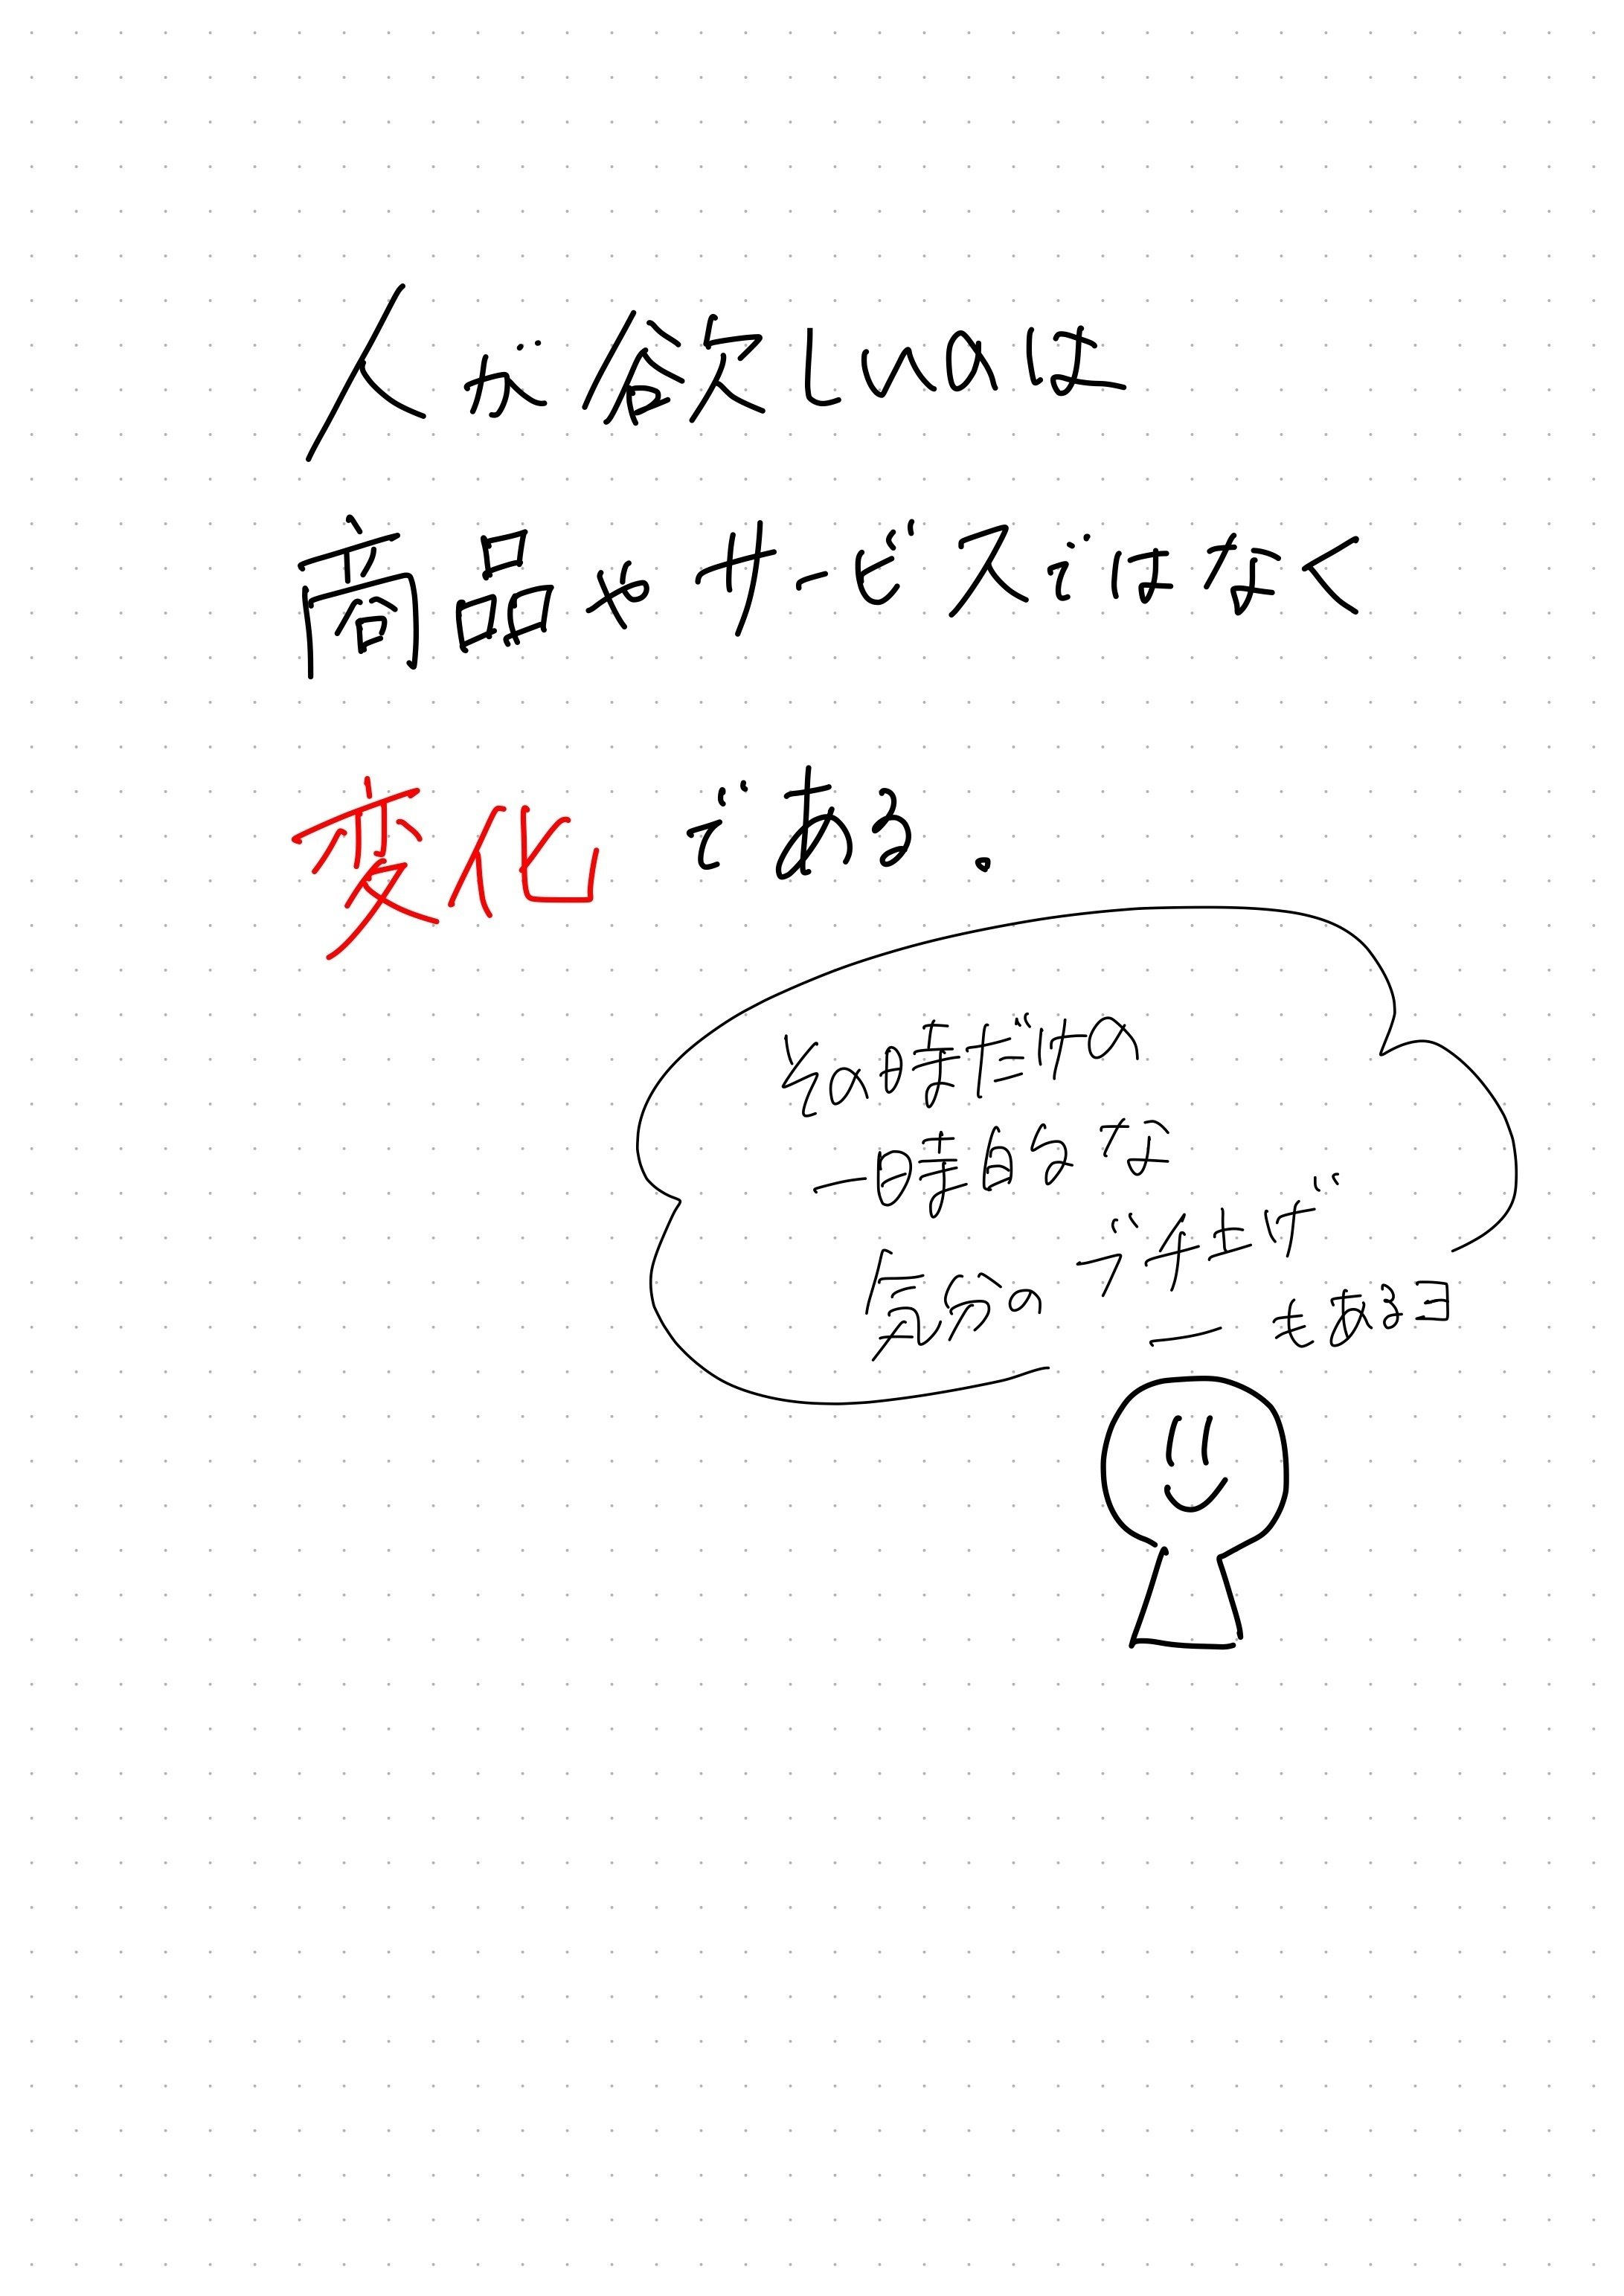 人が欲しいのは
商品やサービスではなく
変化である.
その時だけの
一時的な
気分のブチ上げ
ーもあるヨ